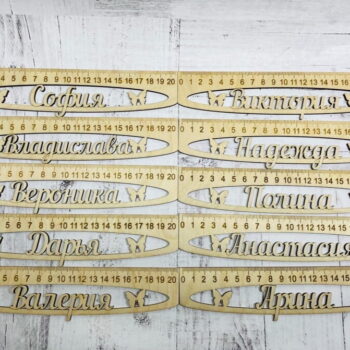 4 5 6 7 8 9 10 11 12 13 14 15 16 17 18 19 20
0 1 2 3 4 5 6 7 8 9 10 11 12 13 14 15 16
София
Виктория
4 5 6 7 8 9 10 11 12 13 14 15 16 17 18 19 20
0 1 2 3 4 5 6 7 8 9 10 11 12 13 14 15 16
Владислава
Надежда
4 5 6 7 8 9 10 11 12 13 14 15 16 17 18 19 20
0 1 2 3 4 5 6 7 8 9 10 11 12 13 14 15 16
Вероника
Полина
4 5 6 7 8 9 10 11 12 13 14 15 16 17 18 19 20
0 1 2 3 4 5 6 7 8 9 10 11 12 13 14 15 16
Дарья
Анастасия
4 5 6 7 8 9 10 11 12 13 14 15 16 17 18 19 20
0 1 2 3 4 5 6 7 8 9 10 11 12 13 14 15 16
Валерия
Арина